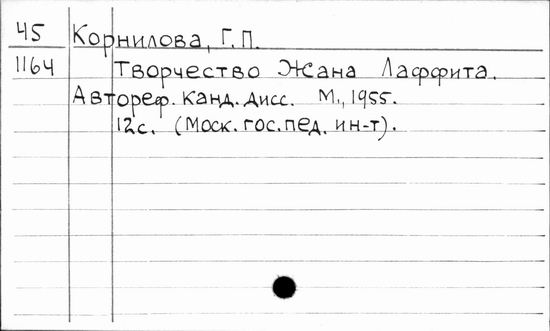 45 Корнилова, Г.П.
1164 Творчество Жана Лаффита.
Автореф. канд. дисс. М., 1955.
12с. (Моск. гос. пед. ин-т).